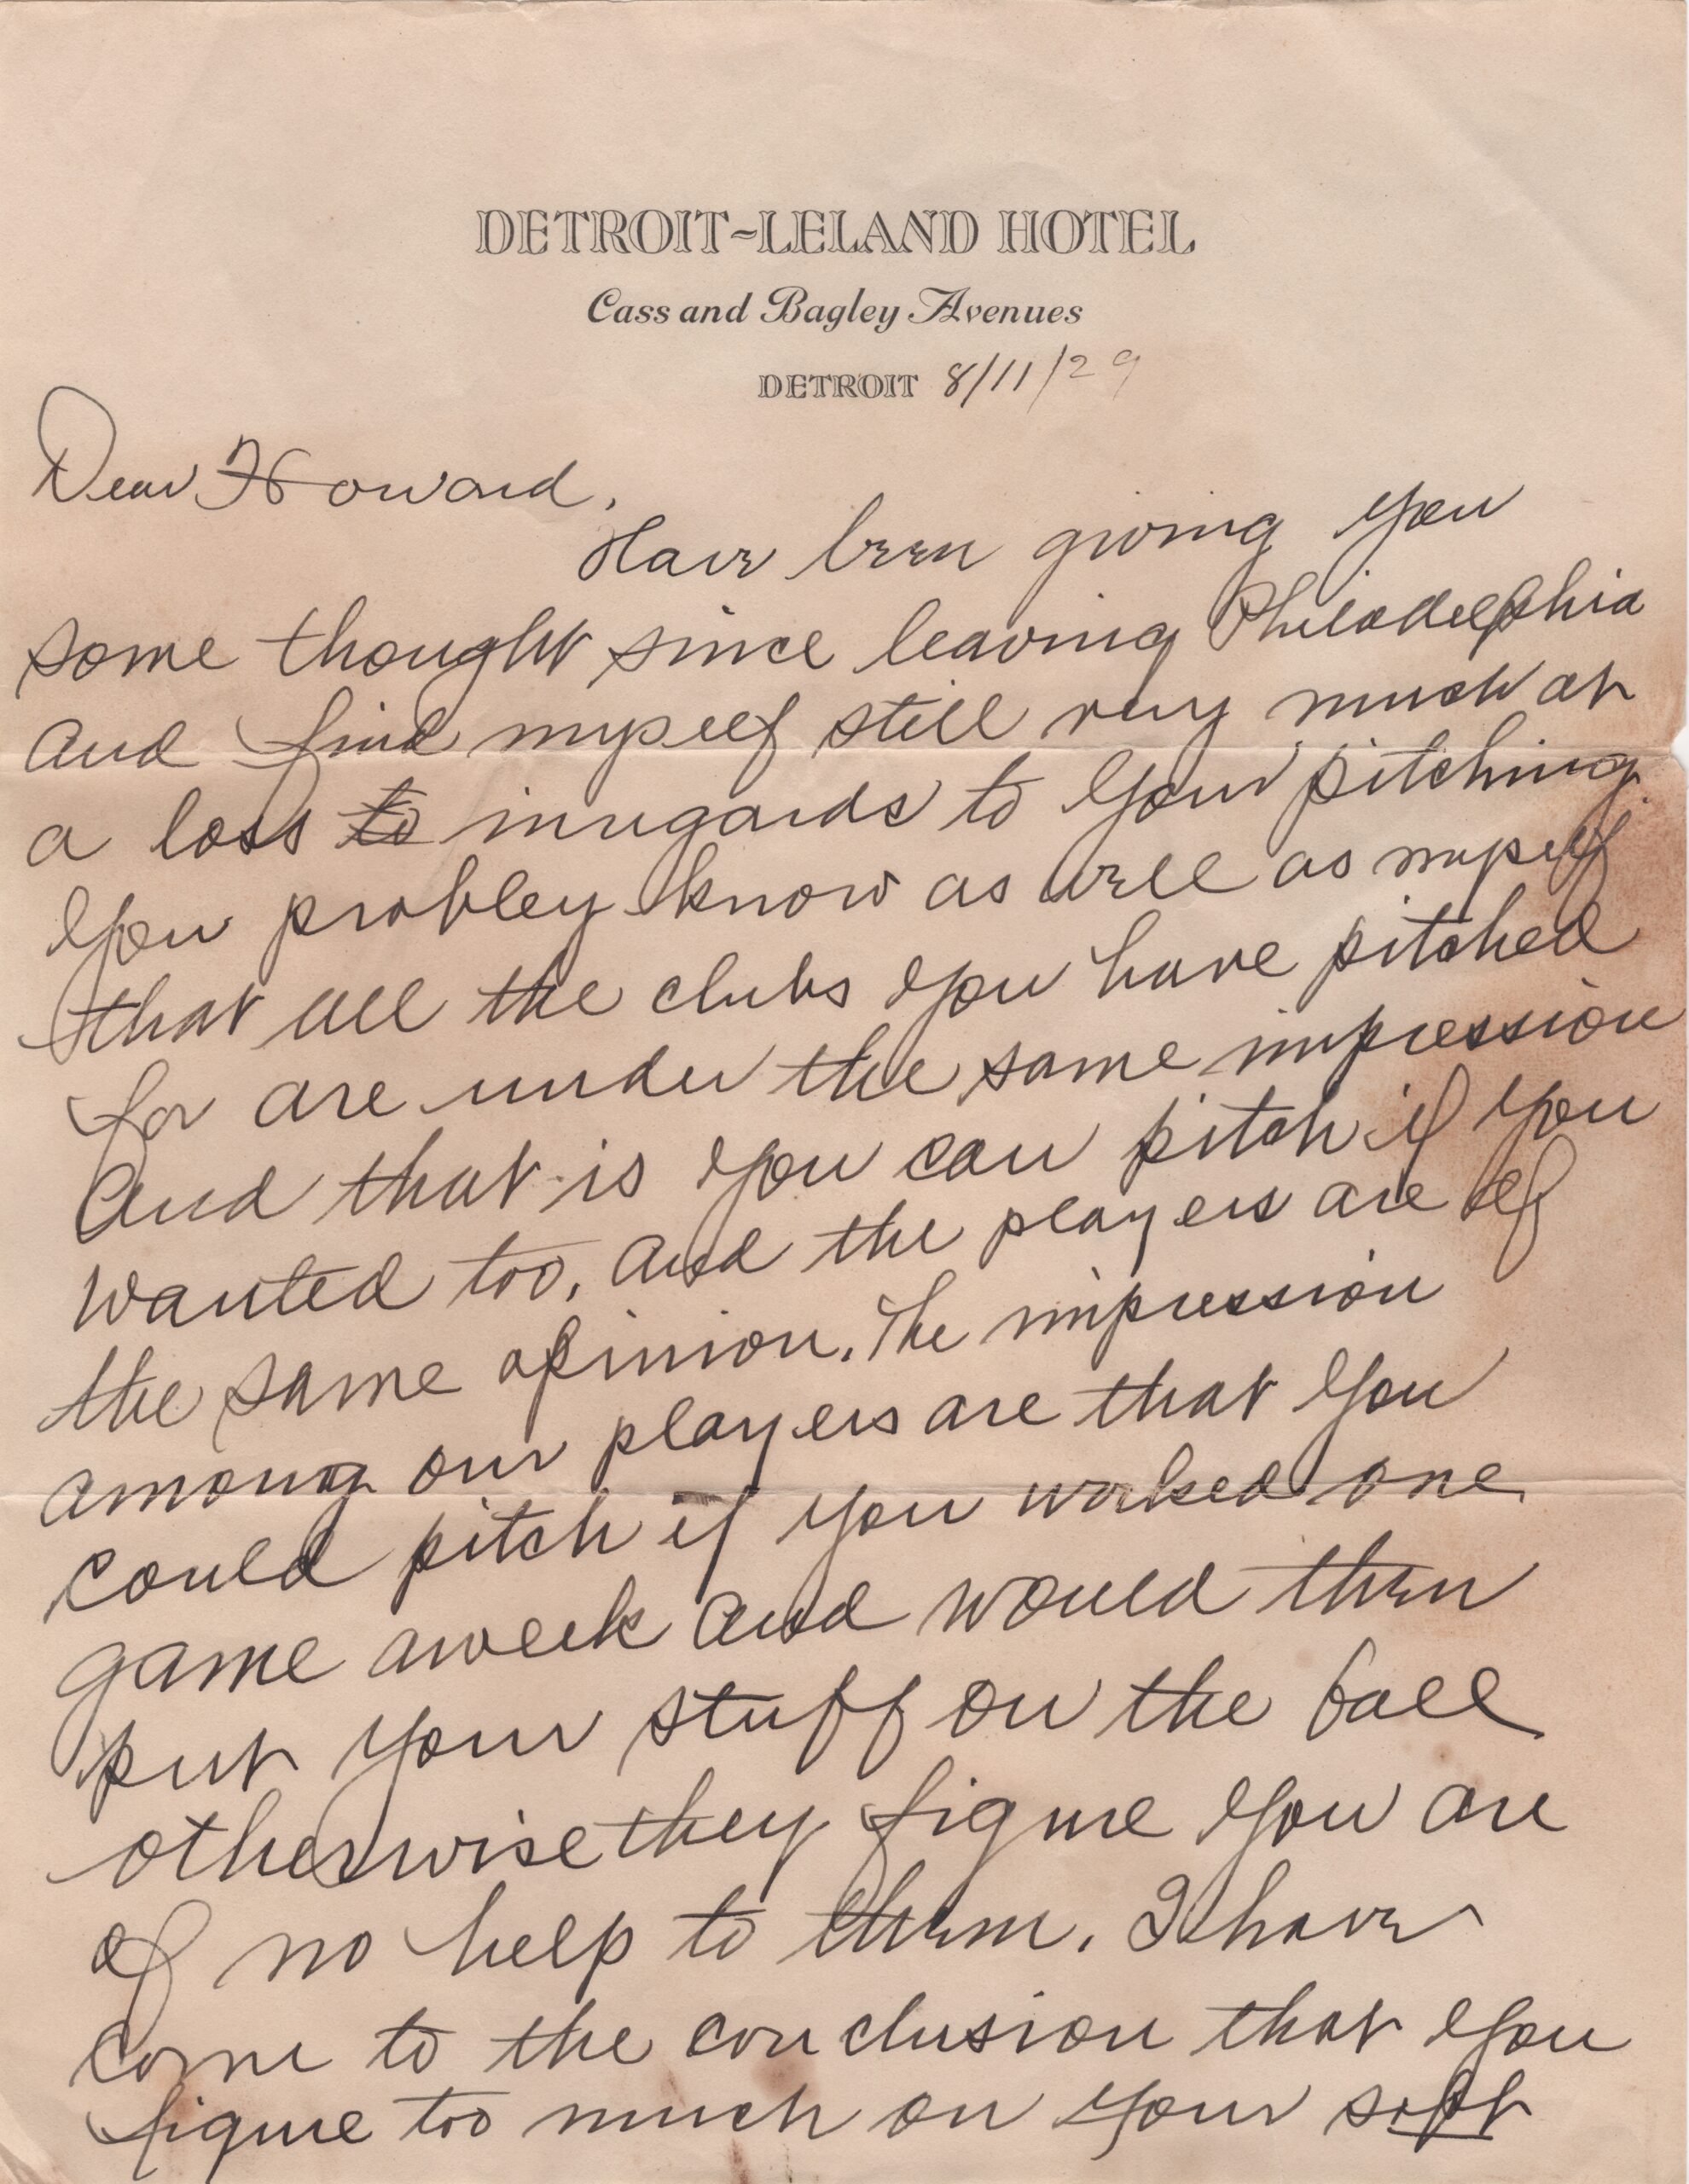 DETROIT-LELAND HOTEL
Cass and Bagley Avenues
DETROIT 8/11/29
Dear Howard,
Have been giving you
some thought since leaving Philadelphia
and find myself still very much at
a loss to inregards to your pitching.
You probley know as well as myself
that all the clubs you have pitched
for are under the same impression
and that is you can pitch if you
wanted too, and the players are of
the same opinion. The impression
among our players are that you
could pitch if you worked one
game aweek and would then
put your stuff on the ball
otherwise they figure you are
of no help to them. I have
come to the conclusion that you
figure too much on your soft